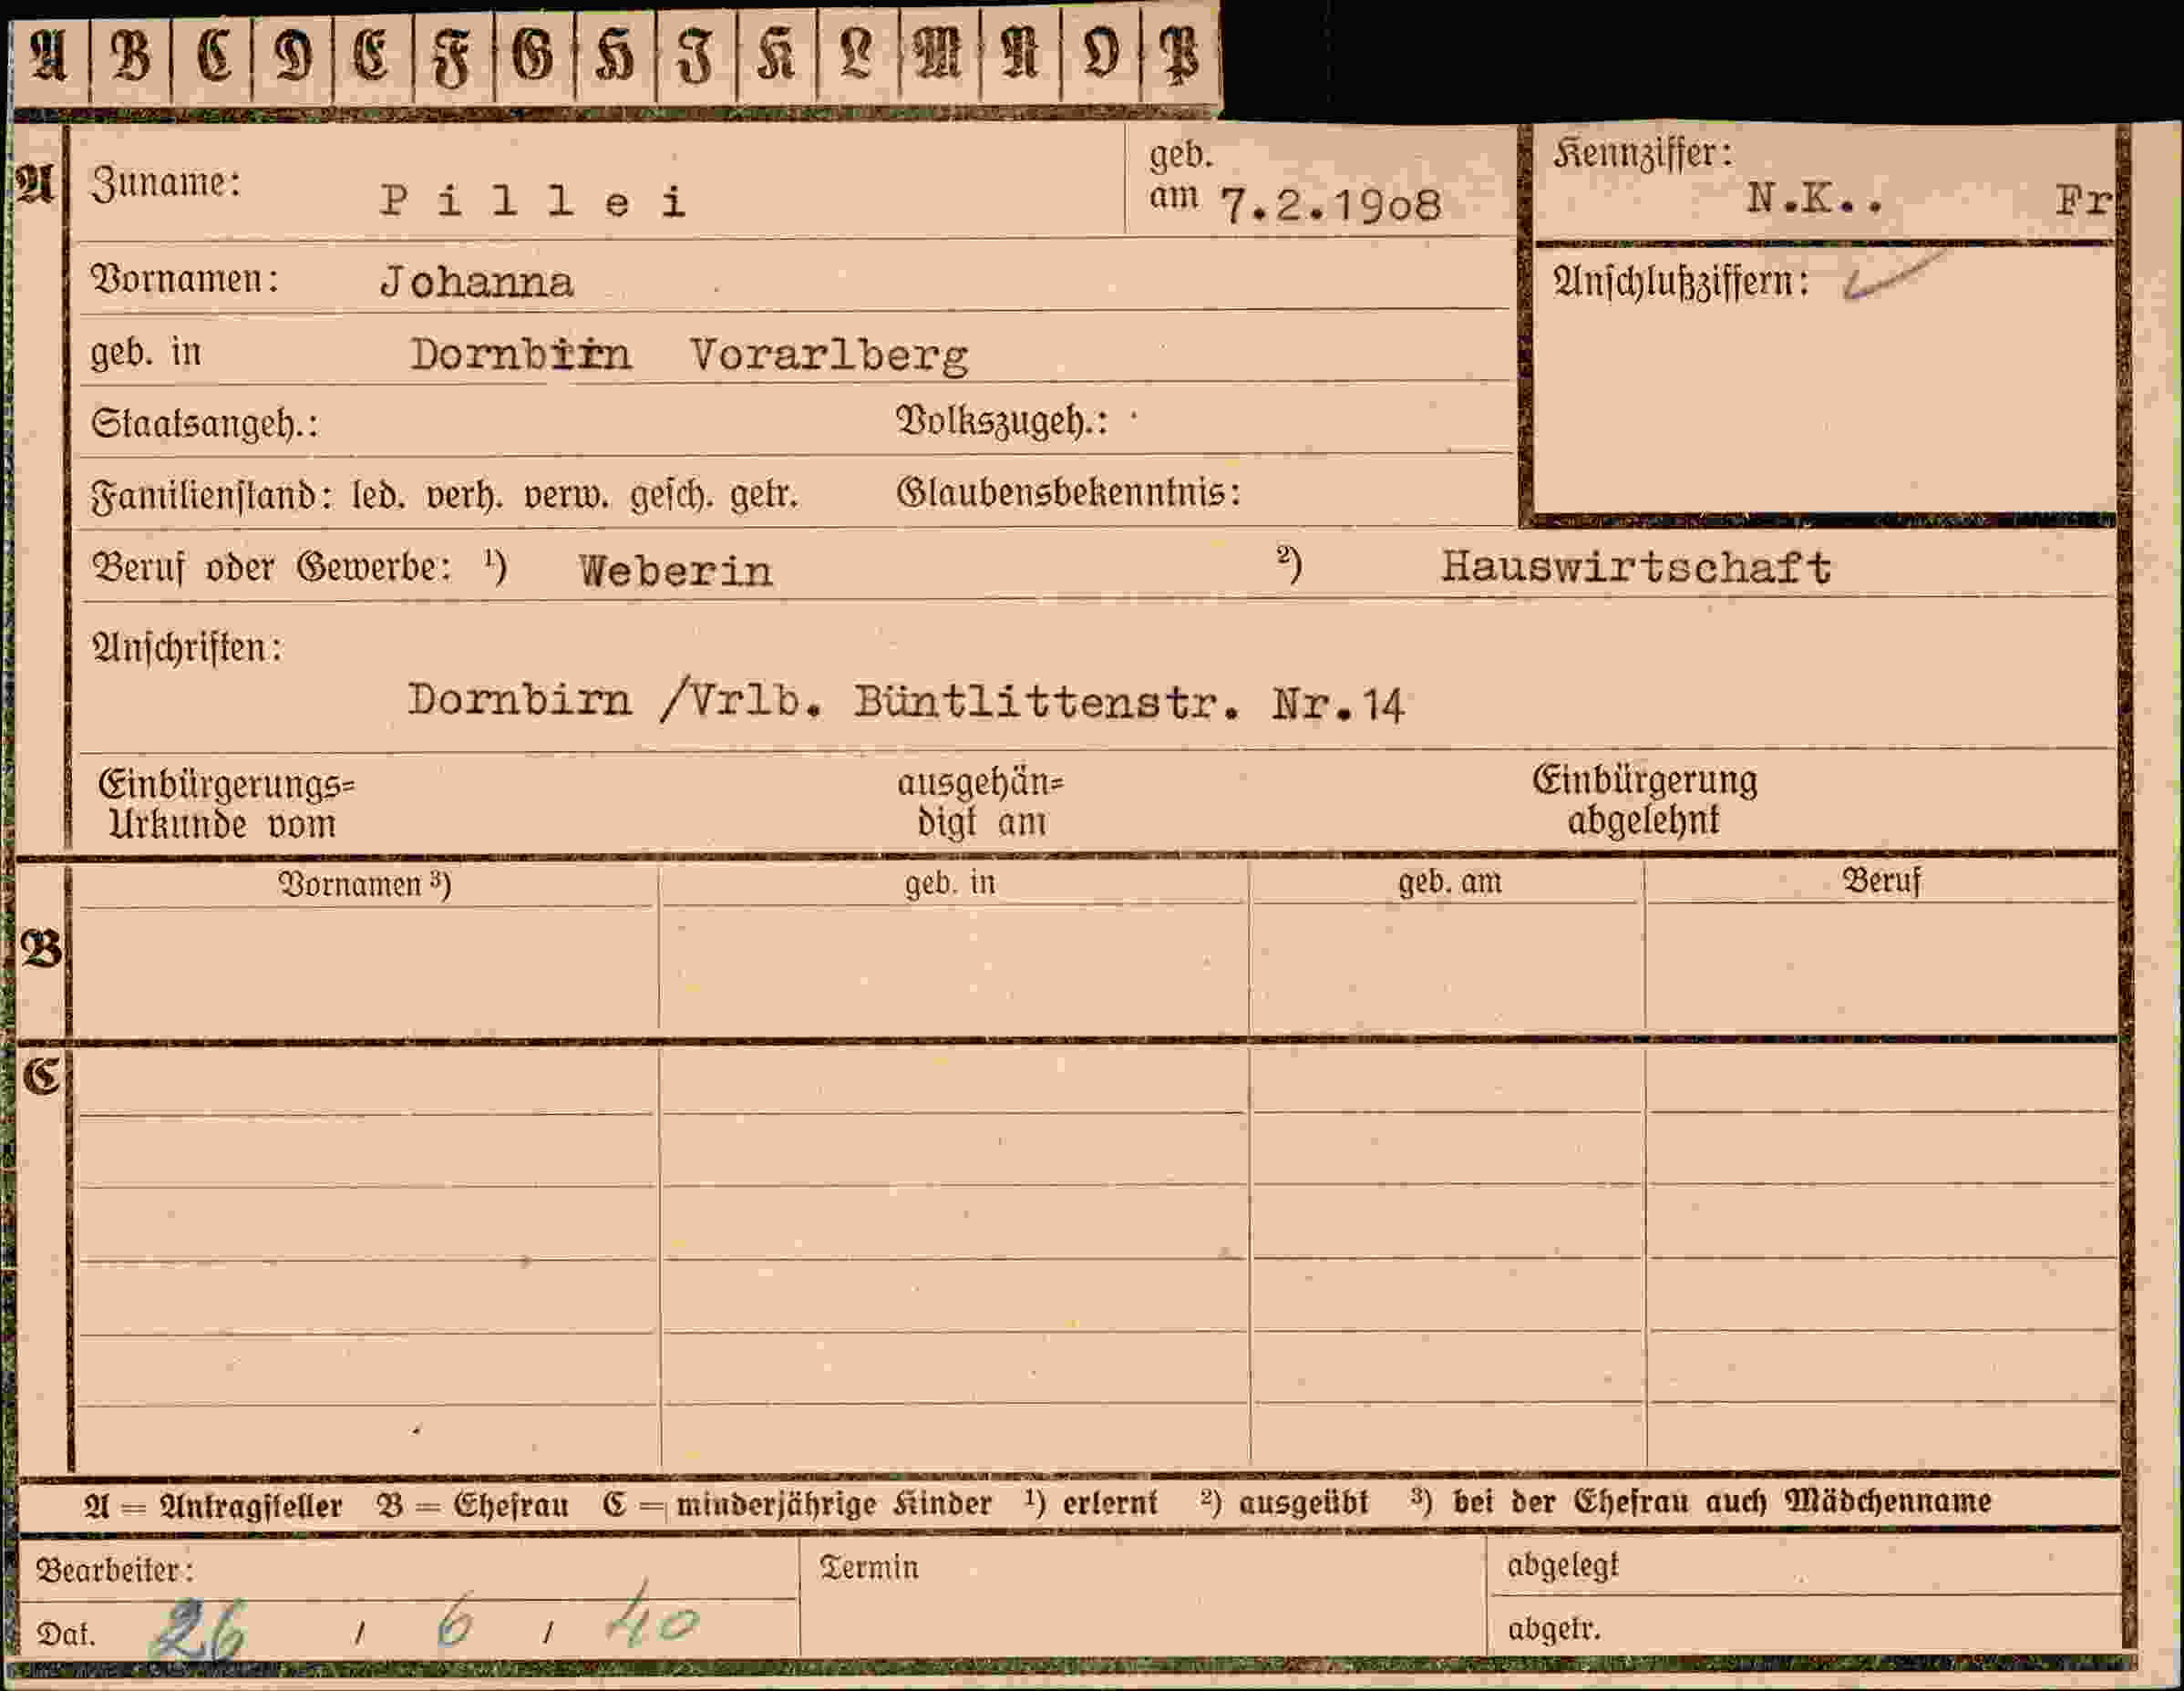 A B C D E F G H I K L M N O P
A Zuname: Pillei geb. am 7.2.1908 Kennziffer: N.K.. Fr
Vornamen: Johanna Anschlußziffern:
geb. in Dornbirn Vorarlberg
Staatsangeh.: Volkszugeh.:
Familienstand: led. verh. verw. gesch. getr. Glaubensbekenntnis:
Beruf oder Gewerbe: ¹) Weberin ²) Hauswirtschaft
Anschriften:
Dornbirn /Vrlb. Büntlittenstr. Nr.14
Einbürgerungs= ausgehän= Einbürgerung
Urkunde vom digt am abgelehnt
Vornamen ³) geb. in geb. am Beruf
B
C
A = Antragsteller B = Ehefrau C = minderjährige Kinder ¹) erlernt ²) ausgeübt ³) bei der Ehefrau auch Mädchenname
Bearbeiter: Termin abgelegt
Dat. 26 / 6 / 40 abgetr.